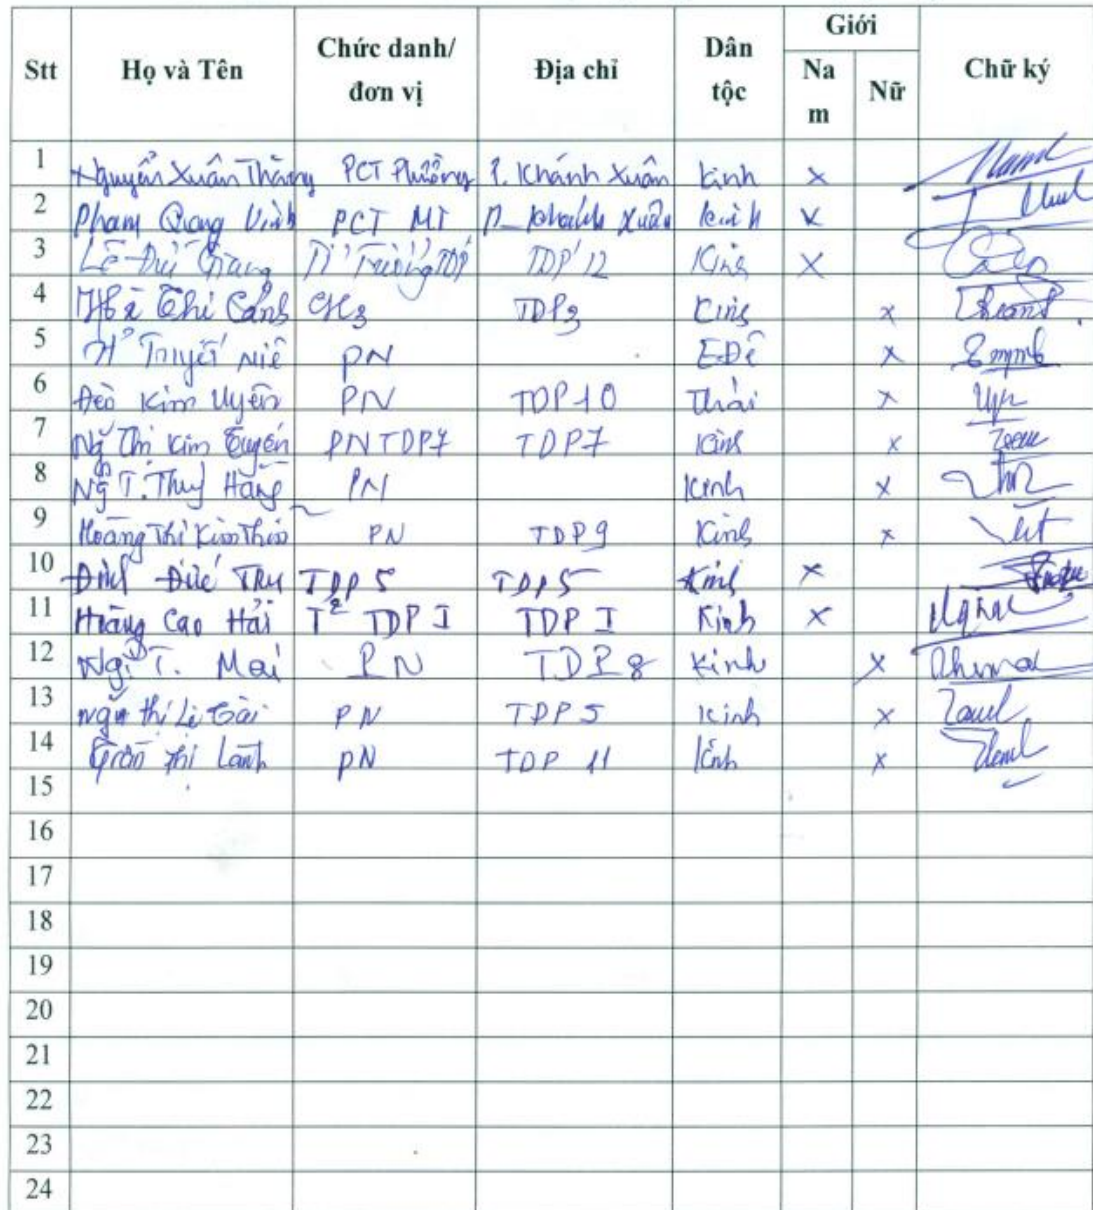 Stt Họ và Tên Chức danh/ đơn vị Địa chỉ Dân tộc Giới Chữ ký
Na m Nữ
1 Nguyễn Xuân Thắng PCT Phường P. Khánh Xuân Kinh x
2 Phạm Quang Vinh PCT MT P. Khánh Xuân Kinh x
3 Lê Đức Giang Tổ Trưởng TDP TDP 12 Kinh x
4 Thị Cảnh TDP3 Kinh x
5 H' Tuyết Niê PN Ê Đê x
6 Đèo Kim Uyên PN TDP 10 Thái x
7 Ng Thị Kim PN TDP7 TDP7 Kinh x
8 Ng T. Thuý Hằng PN Kinh x
9 Hoàng Thị Kim PN TDP9 Kinh x
10 Đinh Đức TDP 5 TDP5 Kinh x
11 Hoàng Cao Hải TDP I TDP I Kinh x
12 T. Mai PN TDP 8 Kinh x
13 thị PN TDP 5 Kinh x
14 Trần thị Lành PN TDP 11 Kinh x
15
16
17
18
19
20
21
22
23
24